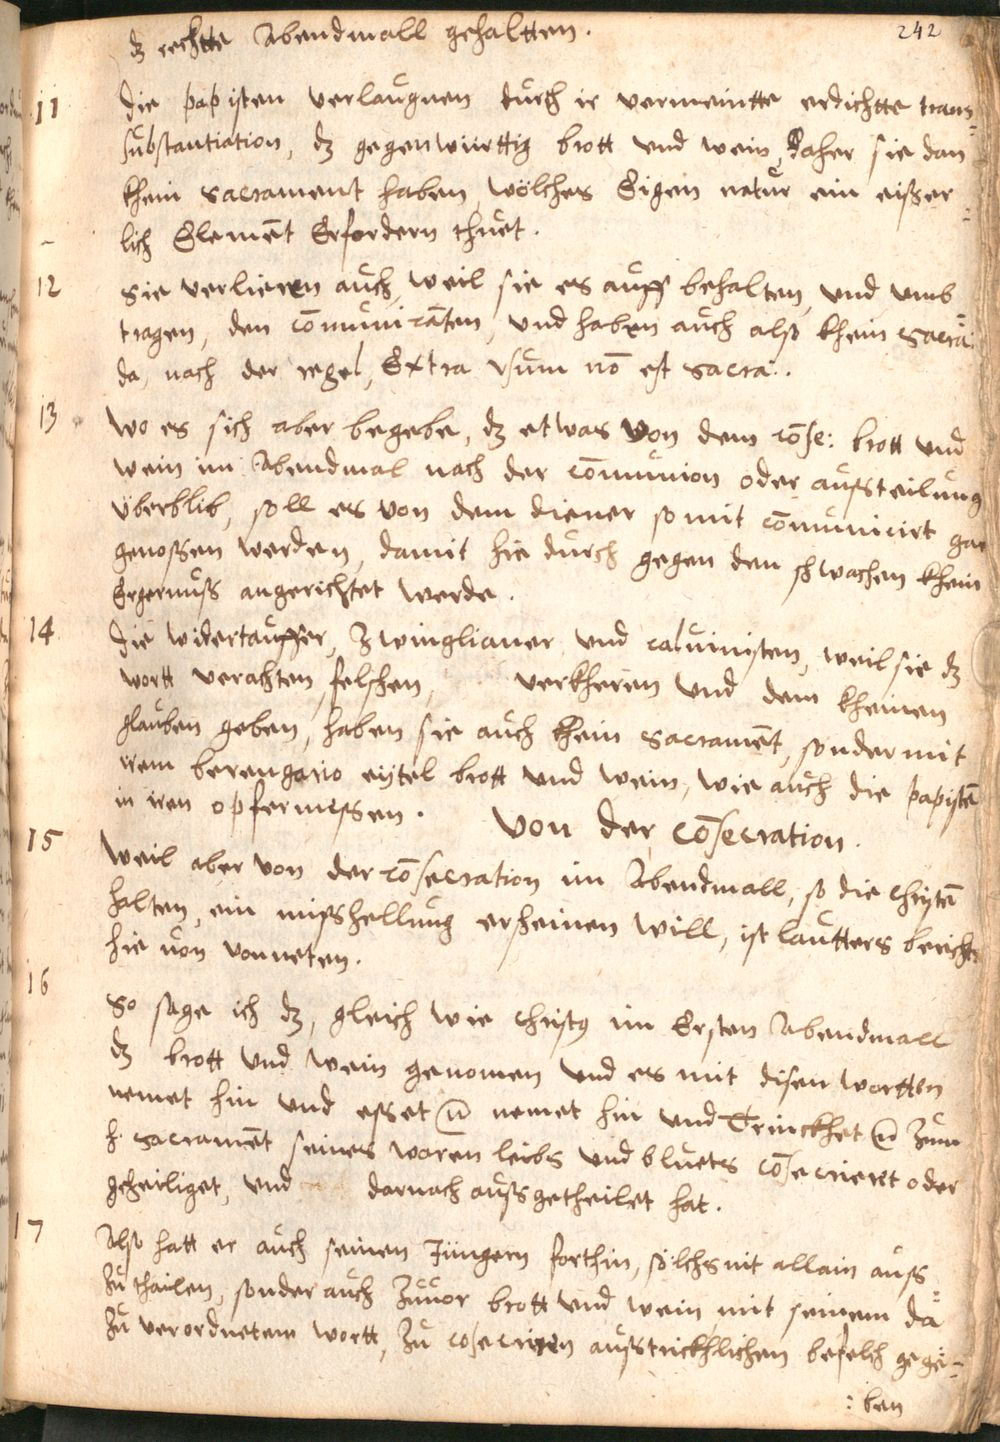 242
dz rechtte Abendmall gehaltten.
11 die papisten verlaugnen durch ir vermeintte erdichtte trans=
substantiation, dz gegenwürttig brott und wein, daher sie dan
khein sacrament haben, wölches Eigen natur ein eisser=
lich Elemēt Erfordern thuet.
12 Sie verlieren auch, weil sie es auff behalten, und umb=
tragen, den com̄unicāten, und haben auch also khein sacra:
da, nach der regel, Extra usum nō est sacra:.
13 Wo es sich aber begebe, dz etwas von dem cōse: brott und
wein im Abendmal nach der com̄union oder aussteilung
überblib, soll es von dem diener so mit com̄unicirt gar
genossen werden, damit hie durch gegen den schwachen khein
Ergernuss angerichtet werde.
14 die widertauffer, Zwinglianer und calvinisten, weil sie dz
wortt verachten, felschen, verkheren und dem kheinen
glauben geben, haben sie auch khein sacramēt, sonder mit
irem berengario eytel brott und wein, wie auch die papistē
in iren opfermessen.
Von der cōsecration.
15 Weil aber von der cōsecration im Abendmall, so die christē
halten, ein misshellung erscheinen will, ist lautters bericht
hie von vonneten.
16 So sage ich dz, gleich wie christus im Ersten Abendmall
dz brott und wein genomen und es mit disen wortten
nemet hin und esset nemet hin und Trinckhet zum
h. sacramēt seines waren leibs und bluets cōsecriert oder
geheiliget, und darnach aussgetheilet hat.
17 Also hatt er auch seinen Jüngern forthin, sölchs nit allain auss=
zu thailen, sonder auch zuvor brott und wein mit seinem da
zu verordnetem wortt, zu cosecriren ausstrückhlichen befelch gege=
:ben